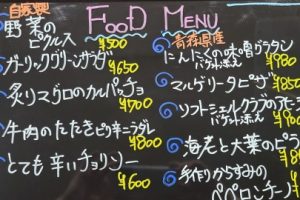 FOOD MENU
自家製
野菜の
ピクルス ¥500
ガーリックグリーンサラダ ¥650
炙りマグロのカルパッチョ ¥700
牛肉のたたきピリ辛ニラダレ ¥800
とても辛いチョリソー ¥600
青森県産
にんにくの味噌グラタン
バゲット添え ¥980
マルゲリータピザ ¥850
ソフトシェルクラブの
バゲット添え
海老と大葉のピ
手作りからすみの
ペペロンチーノ